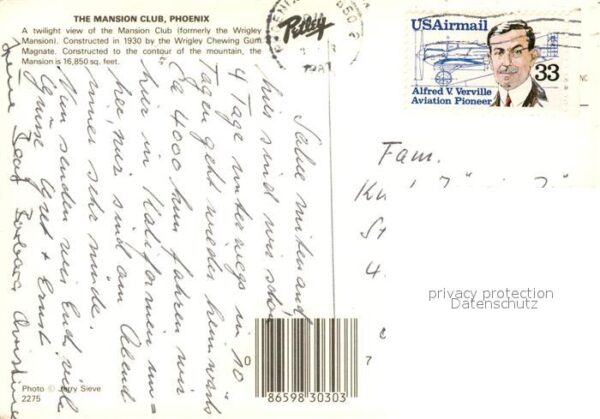 THE MANSION CLUB, PHOENIX
A twilight view of the Mansion Club (formerly the Wrigley
Mansion). Constructed in 1930 by the Wrigley Chewing Gum
Magnate. Constructed to the contour of the mountain, the
Mansion is 16,850 sq. feet.
Petley
1987
USAirmail
33
Alfred V. Verville
Aviation Pioneer
Salü mitenand,
sind wir schon
4 Tage unterwegs in 10
Tagen geht wieder heimwärts
Ca 4000 km fahren wir
hier in Kalifornien um=
her, wir sind am Abend
immer sehr müde.
Nun senden wir Euch viele
Grüsse Agnet + Ernst
Barbara Christine
Fam.
privacy protection
Datenschutz
Photo © Jerry Sieve
2275
0
86598 30303
7